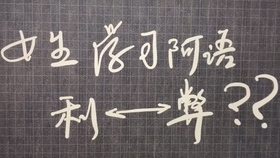 女生学习阿语
利↔弊??